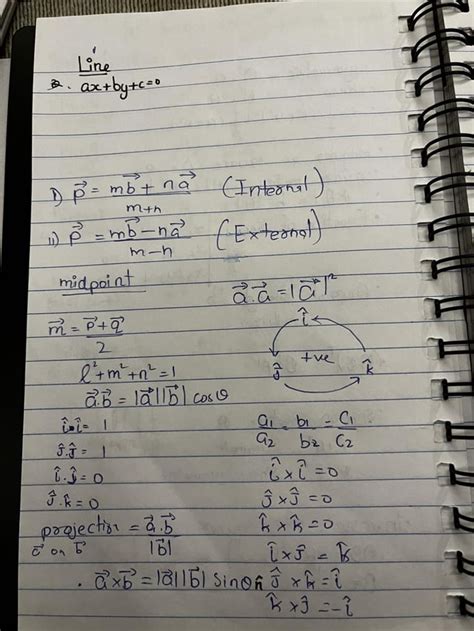 Line
2. ax+by+c=0
I) p⃗ = (mb⃗ + na⃗)/(m+n) (Internal)
II) p⃗ = (mb⃗ - na⃗)/(m-n) (External)
midpoint
a⃗.a⃗ = |a⃗|²
m⃗ = (p⃗ + q⃗)/2
î
ĵ +ve k̂
l²+m²+n²=1
a⃗.b⃗ = |a⃗||b⃗| cosθ
î.î = 1
a₁/a₂ = b₁/b₂ = c₁/c₂
ĵ.ĵ = 1
î.ĵ = 0
î×î = 0
ĵ.k̂ = 0
ĵ×ĵ = 0
projection a⃗ on b⃗ = a⃗.b⃗/|b⃗|
k̂×k̂ = 0
î×ĵ = k̂
. a⃗×b⃗ = |a⃗||b⃗| sinθ n̂
ĵ×k̂ = î
k̂×ĵ = -î